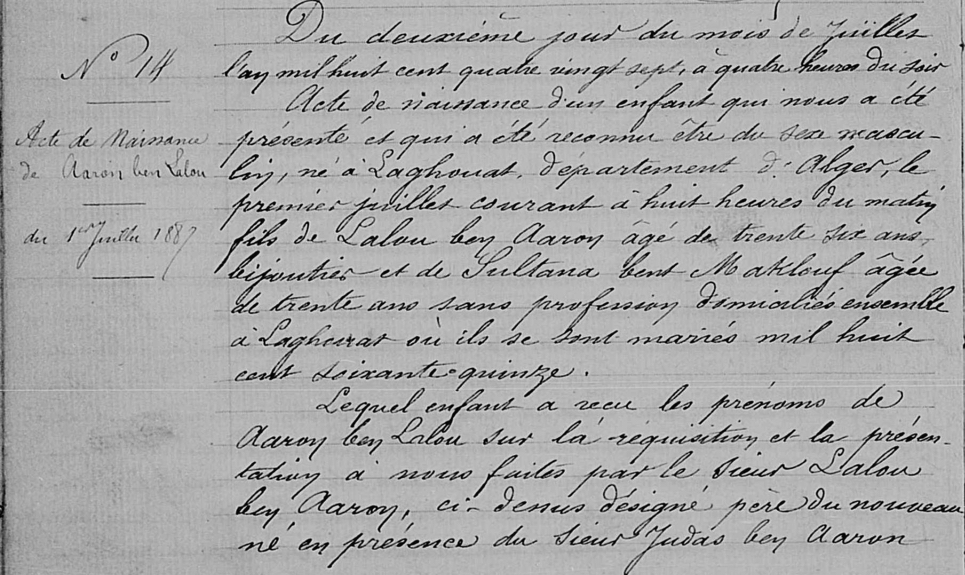 N° 14
Acte de Naissance
de Aaron ben Lalou
du 1er Juillet 1887
Du deuxième jour du mois de Juillet
l'an mil huit cent quatre vingt sept, à quatre heures du soir
Acte de naissance d'un enfant qui nous a été
présenté et qui a été reconnu être du sexe mascu-
lin, né à Laghouat, département d'Alger, le
premier juillet courant à huit heures du matin
fils de Lalou ben Aaron âgé de trente six ans,
bijoutier et de Sultana bent Maklouf âgée
de trente ans sans profession domiciliés ensemble
à Laghouat où ils se sont mariés mil huit
cent soixante-quinze.
Lequel enfant a reçu les prénoms de
Aaron ben Lalou sur la réquisition et la présen-
tation à nous faites par le sieur Lalou
ben Aaron, ci-dessus désigné père du nouveau
né en présence du sieur Judas ben Aaron